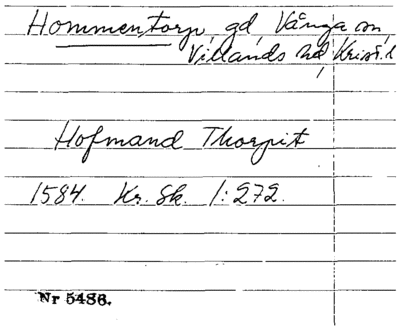 Hommentorp, gd, Vånga sn,
Villands hd, Krist. l
Hofmand Thorpit
1584. Kr. Sk. 1:272.
Nr 5486.